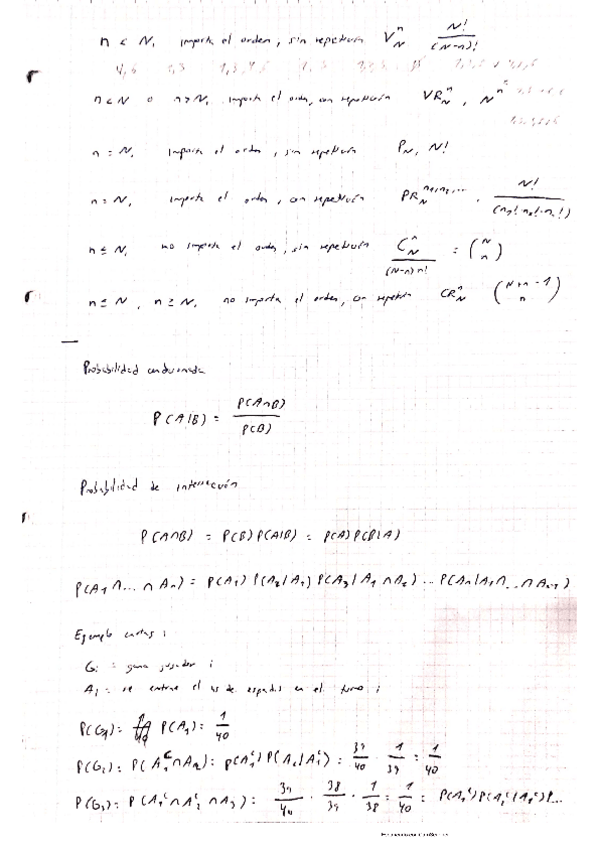 n < N, importa el orden, sin repetición V_N^n N!/(N-n)!
n < N o n > N, importa el orden, con repetición VR_N^n, N^n
n = N, importa el orden, sin repetición P_N, N!
n = N, importa el orden, con repetición PR_N^{n₁,n₂,...}, N!/(n₁! n₂! ... n_r!)
n ≤ N, no importa el orden, sin repetición C_N^n/(N-n)n! = (N n)
n ≤ N, n ≥ N, no importa el orden, con repetición CR_N^n (N+n-1 n)
Probabilidad condicionada
P(A|B) = P(A∩B)/P(B)
Probabilidad de intersección
P(A∩B) = P(B)P(A|B) = P(A)P(B|A)
P(A₁∩...∩An) = P(A₁)P(A₂/A₁)P(A₃/A₁∩A₂)...P(An/A₁∩...∩A_{n-1})
Ejemplo cartas:
Gi = gana jugador i
Ai = se extrae el as de espadas en el turno i
P(G₁) = P(A₁) = 1/40
P(G₂) = P(A₁ᶜ∩A₂) = P(A₁ᶜ)P(A₂/A₁ᶜ) = 39/40 · 1/39 = 1/40
P(G₃) = P(A₁ᶜ∩A₂ᶜ∩A₃) = 39/40 · 38/39 · 1/38 = 1/40 = P(A₁ᶜ)P(A₂ᶜ/A₁ᶜ)P...